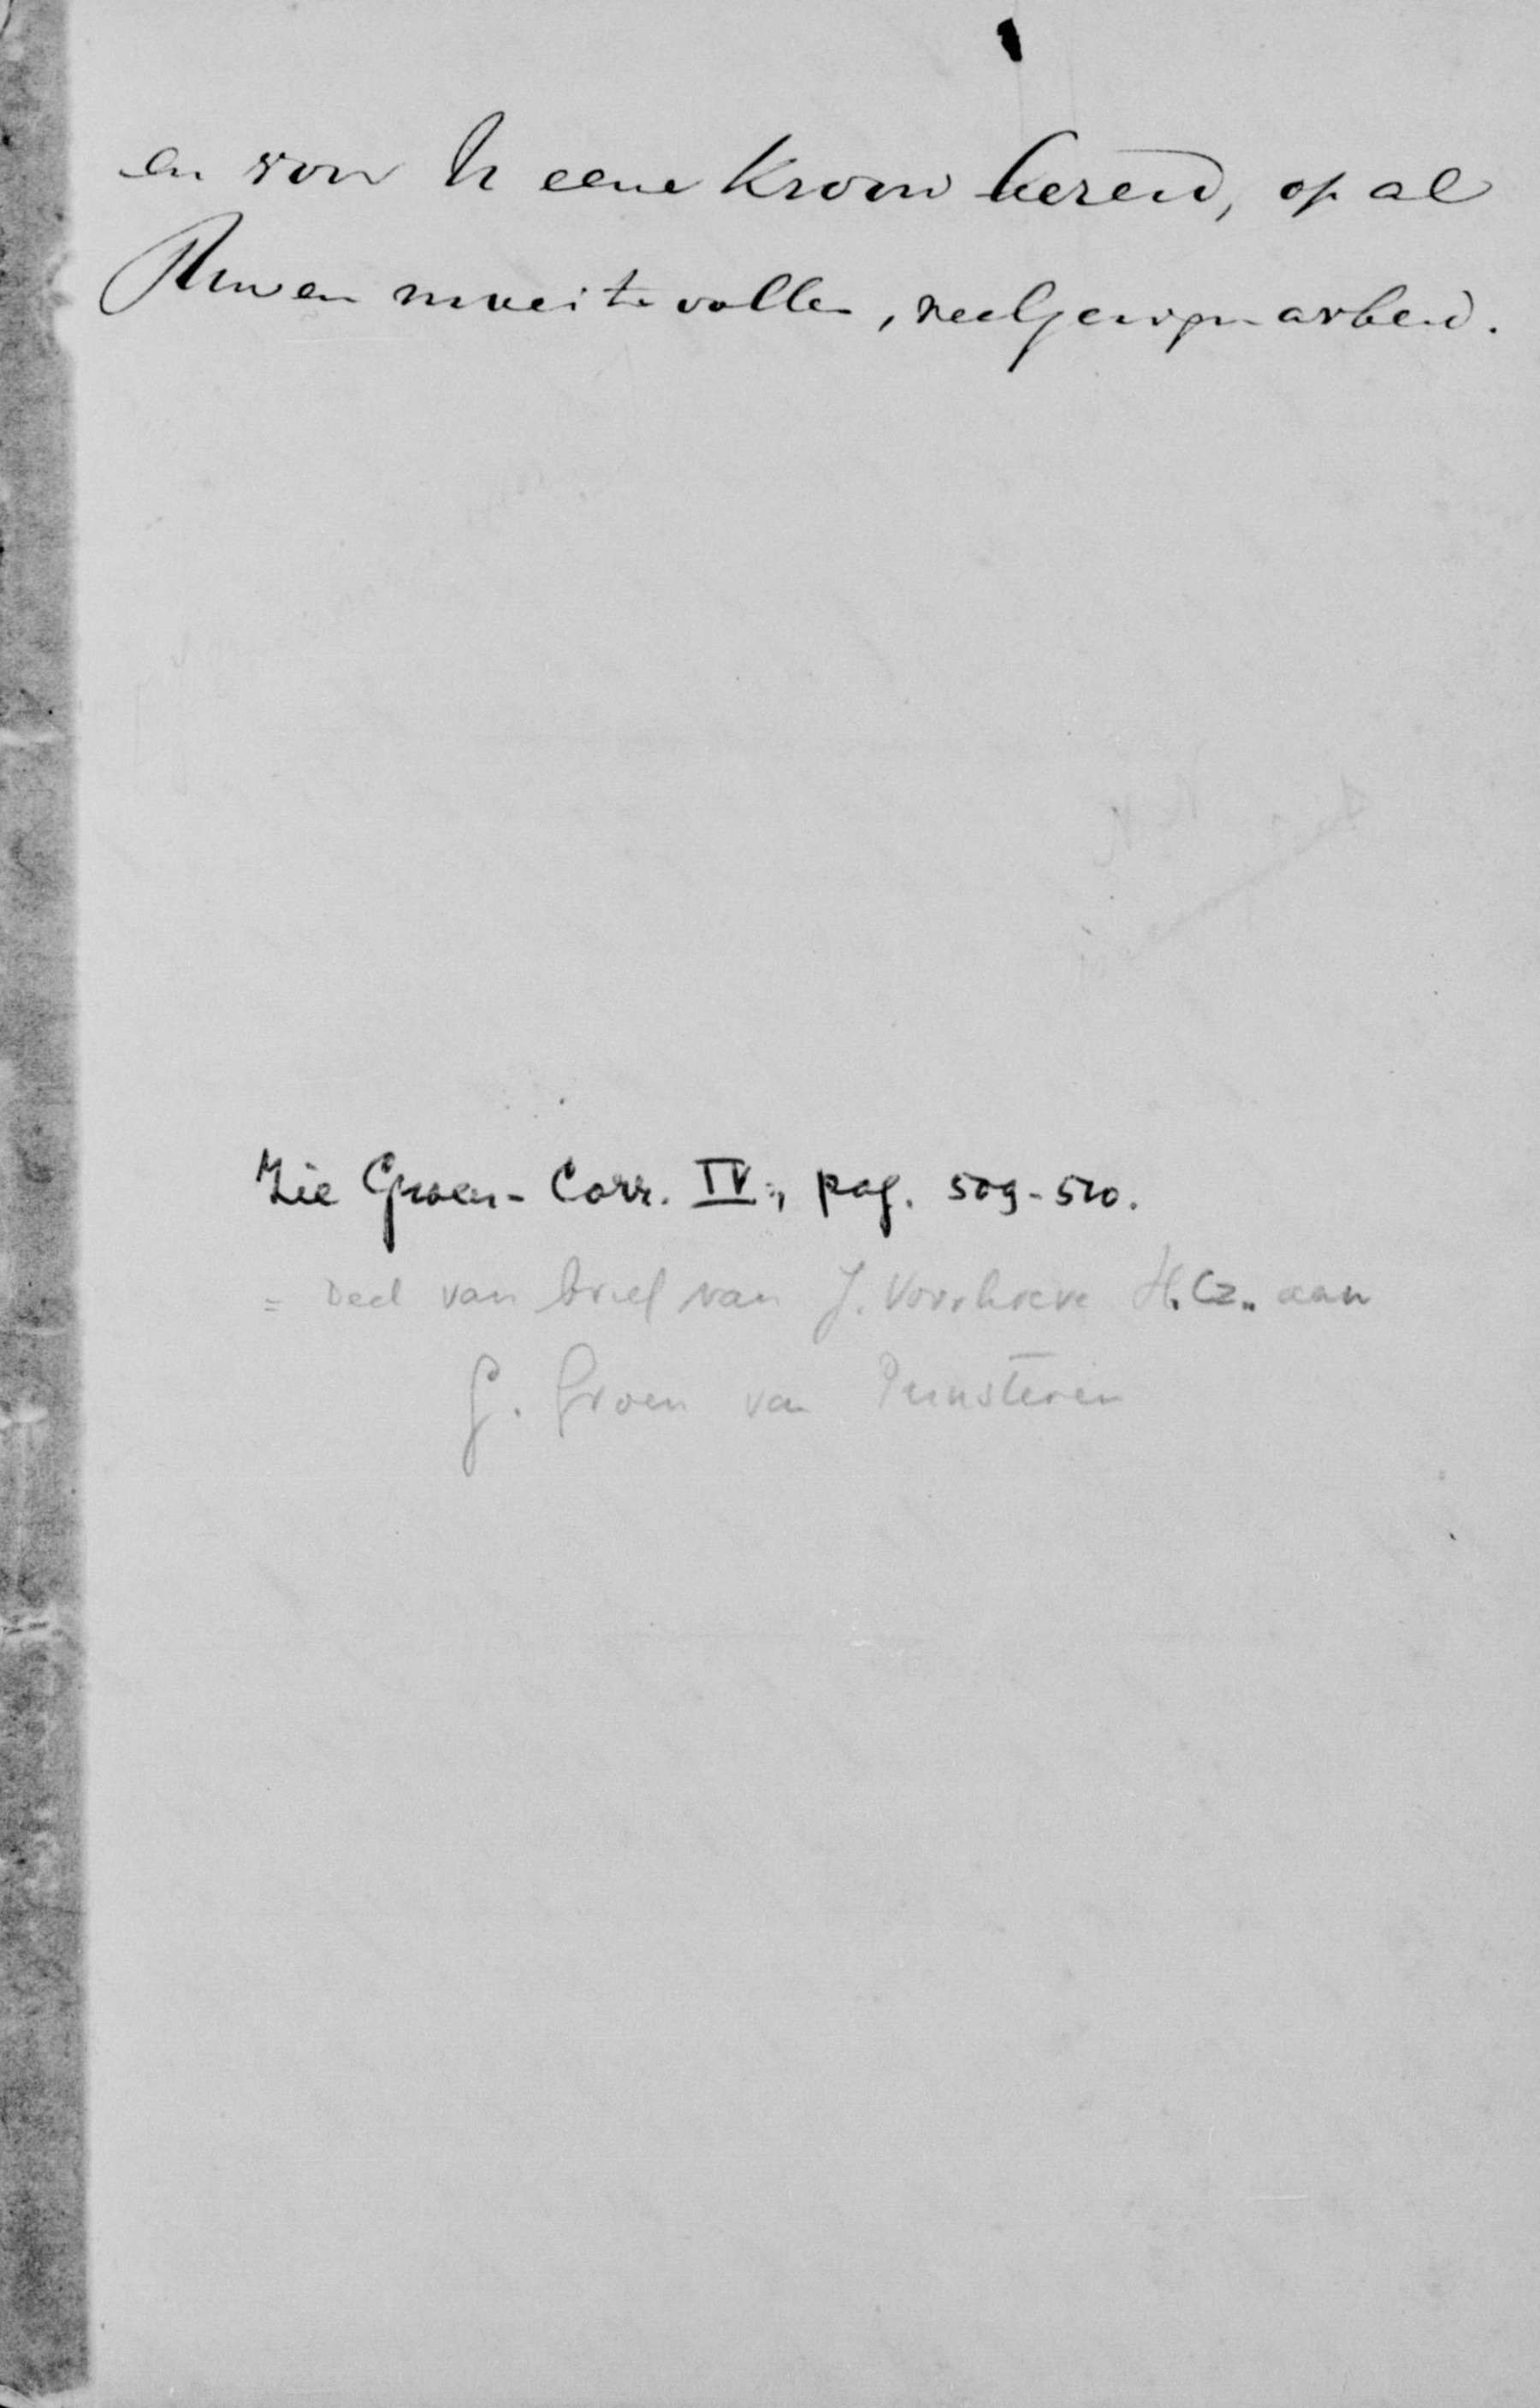 en voor U eene kroon bereid, op al
Uwen moeitevollen, veeljarigen arbeid.
Zie Groen-Corr. IV, pag. 509-510.
= Deel van brief van J. Voorhoeve H.Cz. aan
G. Groen van Prinsterer